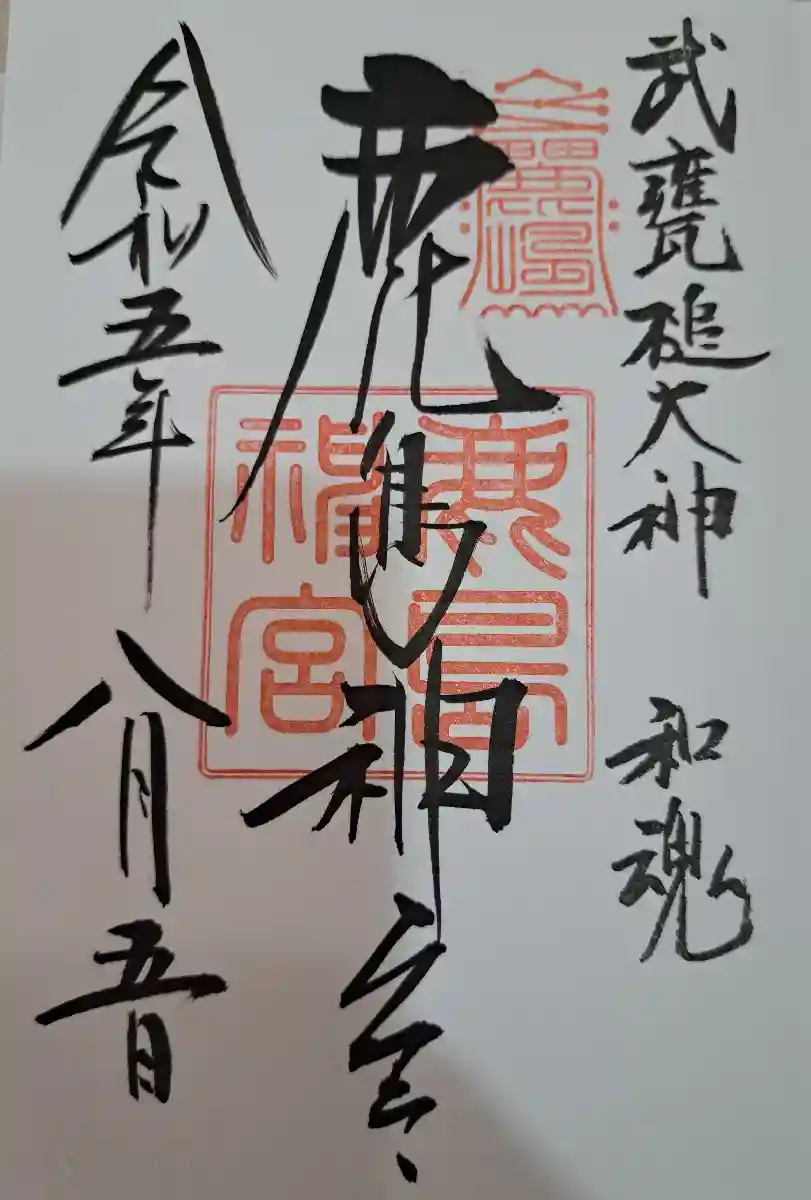 武甕槌大神 和魂
鹿島神宮
鹿島
神宮
令和五年 八月五日